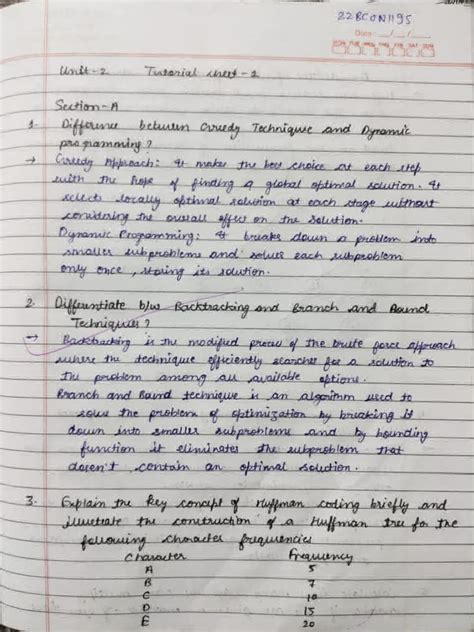 22BCON1195
Date: / /
SUN MON TUE WED THU FRI SAT
Unit-2 Tutorial sheet-2
Section-A
1. Difference between Greedy Technique and Dynamic
programming?
→ Greedy Approach: It makes the best choice at each step
with the hope of finding a global optimal solution. It
selects locally optimal solution at each stage without
considering the overall effect on the solution.
Dynamic Programming: It breaks down a problem into
smaller subproblems and solves each subproblem
only once, storing its solution.
2. Differentiate b/w Backtracking and Branch and Bound
Techniques?
→ Backtracking is the modified process of the brute force approach
where the technique efficiently searches for a solution to
the problem among all available options.
Branch and Bound technique is an algorithm used to
solve the problem of optimization by breaking it
down into smaller subproblems and by bounding
function it eliminates the subproblem that
doesn't contain an optimal solution.
3. Explain the key concept of Huffman coding briefly and
illustrate the construction of a Huffman tree for the
following character frequencies
Character Frequency
A 5
B 7
C 10
D 15
E 20